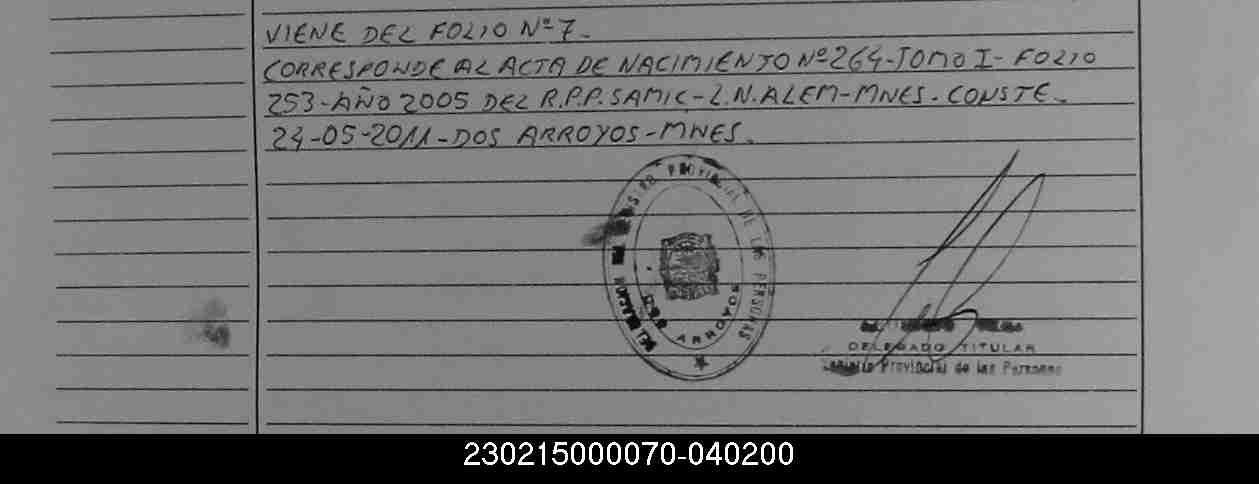 VIENE DEL FOLIO Nº 7.
CORRESPONDE AL ACTA DE NACIMIENTO Nº 264-TOMO I- FOLIO
253-AÑO 2005 DEL R.P.P. SAMIC-L.N. ALEM-MNES. CONSTE.
24-05-2011-DOS ARROYOS-MNES.
PROVINCIAL DE LAS PERSONAS
ARROYOS
DELEGADO TITULAR
Registro Provincial de las Personas
230215000070-040200